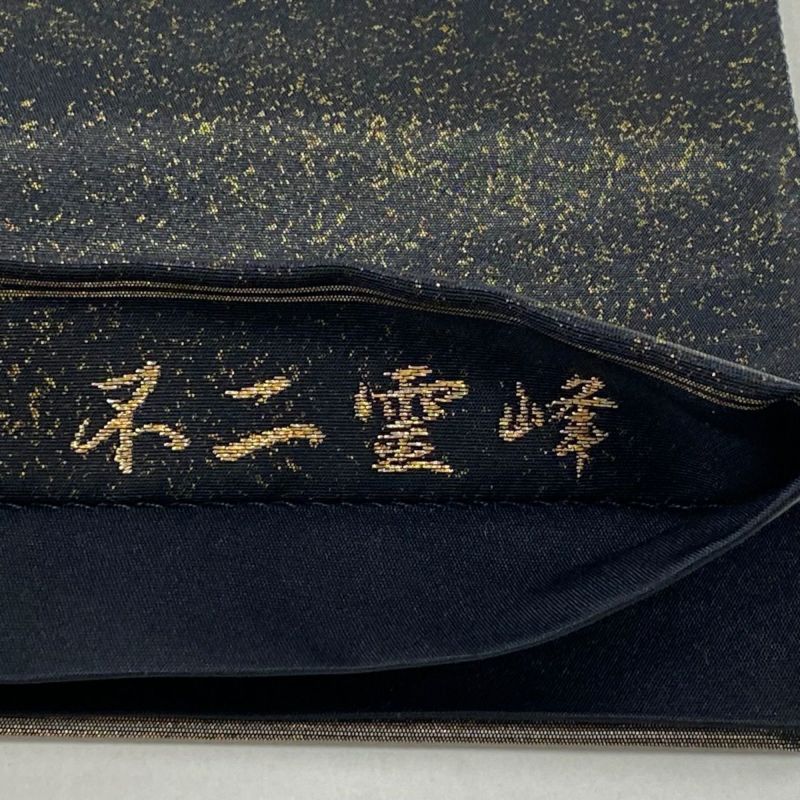 不二霊峰